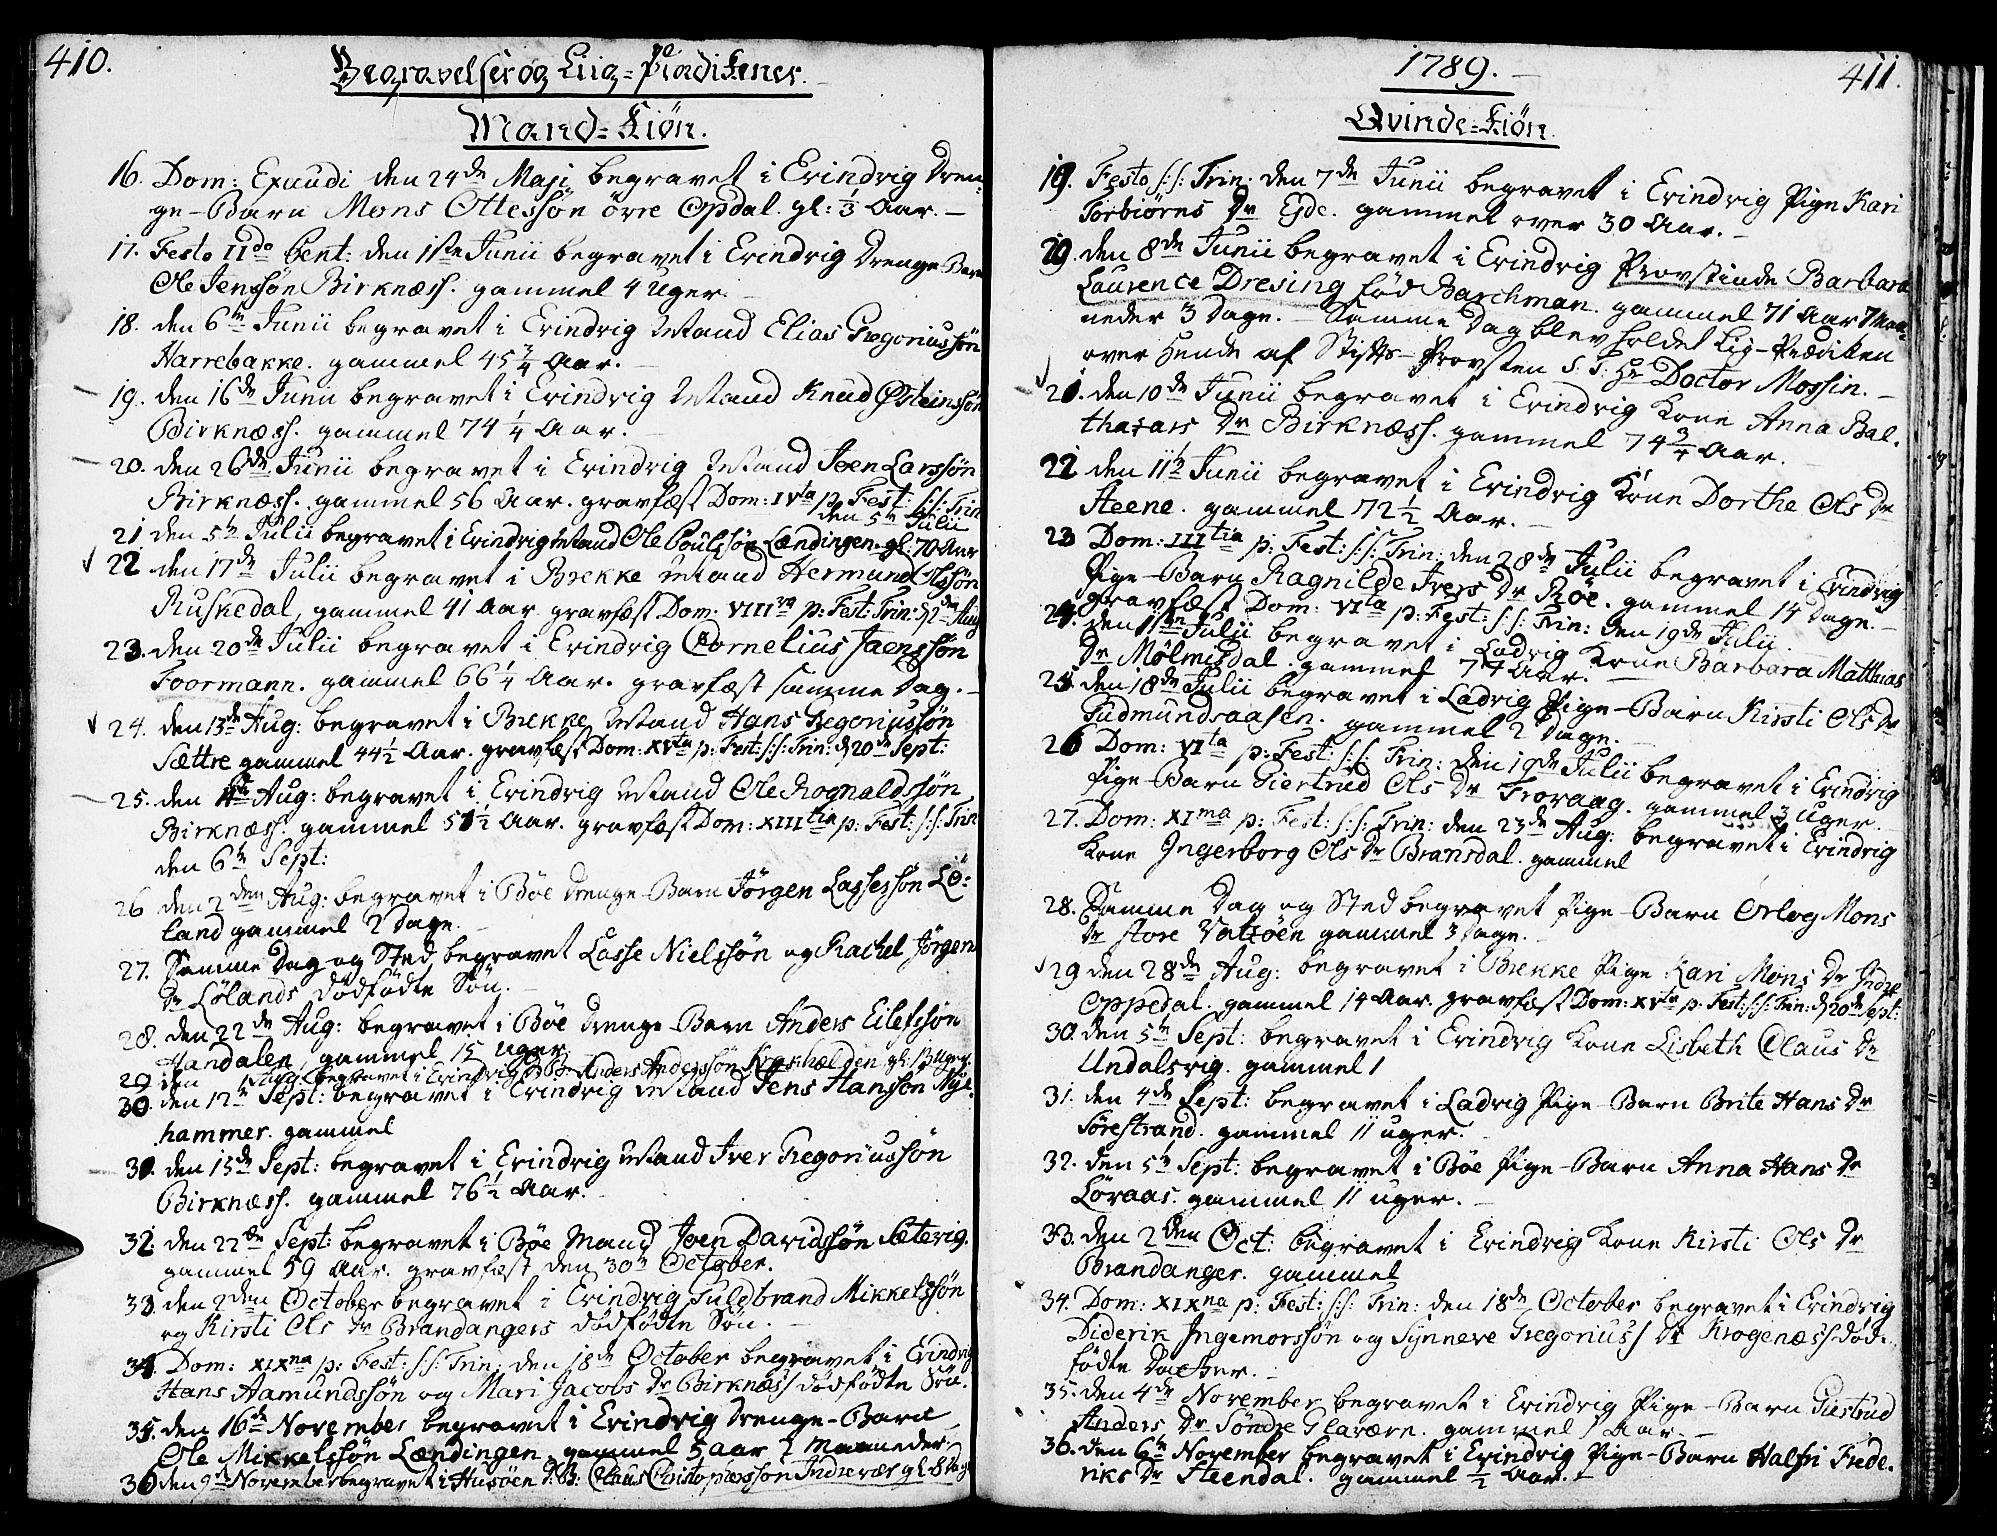 410.
Begravelser og Liig-Prædikener.
Mand-Kiøn.
16. Dom: Exaudi den 24de Maji begravet i Evindvig Dren-
ge-Barn Mons Ottessøn övre Opdal. gl: 1/3 Aar.
17. Festo IIdo Pent: den 1ste Junii begravet i Evindvig Drenge-Barn
Ole Jenssøn Birknæss. gammel 4 Uger.
18. den 6te Junii begravet i Evindvig Mand Elias Gregoriussøn
Harrebakke. gammel 45 3/4 Aar.
19. den 16de Junii begravet i Evindvig Mand Knud Østeinssøn
Birknæss. gammel 74 1/4 Aar.
20. den 26de Junii begravet i Evindvig Mand Joen Larssøn
Birknæss. gammel 56 Aar. gravfæst Dom: IVta p. Fest: s:s: Trin
den 5te Julii
21 den 5te Julii begravet i Evindvig Mand Ole Poulssøn Lændingen. gl: 70 Aar
22 den 17de Julii begravet i Brekke Mand Hermund Olssøn
Ruskedal, gammel 41 Aar gravfæst Dom: VIIIva p: Fest: Trin: d: 2den Aug
23. den 20de Julii begravet i Evindvig Cornelius Jaenssøn
Foormann. gammel 66 1/4 Aar. gravfæst samme Dag.
24. den 13de Aug: begravet i Brekke Mand Hans Gregoriussøn
Sættre gammel 44 1/2 Aar. gravfæst Dom: XVta p: Fest: s:s: Trin: d 20de Sept:
25. den Aug: begravet i Evindvig Mand Ole Rognaldssøn
Birknæss. gammel 51 1/2 Aar. gravfæst Dom: XIIItia p: Fest: s:s: Trin
den 6te Sept:
26 den 2den Aug: begravet i Böe Drenge-Barn Jörgen Lassessøn Lö-
land gammel 2 Dage.
27. Samme Dag og Sted begravet Lasse Nielssøn og Rachel Jörgens
Dr Lölands dödfödte Sön.
28. den 22de Aug: begravet i Böe Drenge-Barn Anders Eilefssøn
Handalen, gammel 15 Uger
29 den Aug: begravet i Evindvig D: B: Anders Anderssøn Krakhælden. gl: 13 Uger.
30. den 12te Sept: begravet i Evindvig Mand Jens Hanssøn Mye-
hammer. gammel
31. den 15de Sept: begravet i Evindvig Mand Iver Gregoriussøn
Birknæss. gammel 76 1/2 Aar.
32. den 22de Sept: begravet i Böe Mand Joen Davidssøn Sæterig.
gammel 59 Aar. gravfæst den 30te October.
33 den 2den October begravet i Evindvig Guldbrand Mikkelssøn
og Kirsti Ols Dr Brandangers dödfödte Sön.
34. Dom: XIXna p: Fest: s:s: Trin: den 18de October begravet i Evindvig
Hans Aamundssøn og Mari Jacobs Dr Birknæss dödfödte Sön.
35. den 16de November begravet i Evindvig Drenge-Barn
Ole Mikkelssøn Lændingen gammel 5 aar 2 Maaneder
36 den 9de November begravet i Husöen D: B: Claus Christophersson Indrevær gl: 8 Dage
1789.
411.
Qvinde-Kiøn.
19. Festo s:s: Trin: den 7de Junii begravet i Evindvig Pige Kari
Torbiörns Dr Eide. gammel over 30 Aar.
20. den 8de Junii begravet i Evindvig Provstinde Barbara
Laurence Dresing föd Barchman. gammel 71 Aar 7 Maa-
neder 3 Dage. Samme Dag blev holdet Lig-Prædiken
over hende af Stifts-Provsten S. T. Hr Doctor Mossin.
21. den 10de Junii begravet i Evindvig Kone Anna Bal-
thazars Dr Birknæss. gammel 74 3/4 Aar.
22 den 11te Junii begravet i Evindvig Kone Dorthe Ols Dr
Steene. gammel 72 1/2 Aar.
23 Dom: IIItia p: Fest: s:s: Trin: den 28de Julii begravet i Evindvig
Pige-Barn Ragnilde Ivers Dr Röe. gammel 14 Dage.
gravfæst Dom: VIta p: Fest: s:s: Trin: den 19de Julii
24. den 1sten Julii begravet i Ladvig Kone Barbara Mathias
Dr Mölmisdal. gammel 74 Aar.
25. den 18de Julii begravet i Ladvig Pige-Barn Kirsti Ols Dr
Gudmundsaasen. gammel 2 Dage.
26 Dom: VIta p: Fest: s:s: Trin: den 19de Julii begravet i Evindvig
Pige-Barn Giertrud Ols Dr Troraag. gammel 3 Uger.
27. Dom: XIma p: Fest: s:s: Trin: den 23de Aug: begravet i Evindvig
Kone Ingerborg Ols Dr Bransdal. gammel
28. Samme Dag og Sted begravet Pige-Barn Orlog Mons
Dr store Vatzöen gammel 3 Dage.
29 den 28de Aug: begravet i Brekke Pige Kari Mons Dr Indre
Oppedal. gammel 14 Aar. gravfæst Dom: XVta p: Fest: s:s: Trin: d 20de Sept:
30. den 5te Sept: begravet i Evindvig Kone Lisbeth Claus Dr
Undalsvig. gammel
31. den 4de Sept: begravet i Ladvig Pige-Barn Brite Hans Dr
Sörestrand. gammel 11 uger.
32. den 5te Sept: begravet i Böe Pige-Barn Anna Hans Dr
Löraas. gammel 11 uger.
33. den 2den Oct: begravet i Evindvig Kone Kirsti Ols Dr
Brandanger. gammel
34. Dom: XIXna p: Fest: s:s: Trin: den 18de October begravet i Evindvig
Diderik Ingemorssøn og Synneve Gregorius Dr Krogenæss död-
födte Datter.
35. den 4de November begravet i Evindvig Pige-Barn Giertrud
Anders Dr Söndre Glaværn. gammel 1 Aar.
36. den 6te November begravet i Evindvig Pige-Barn Halfri Frede-
riks Dr Steendal. gammel 1/2 Aar.